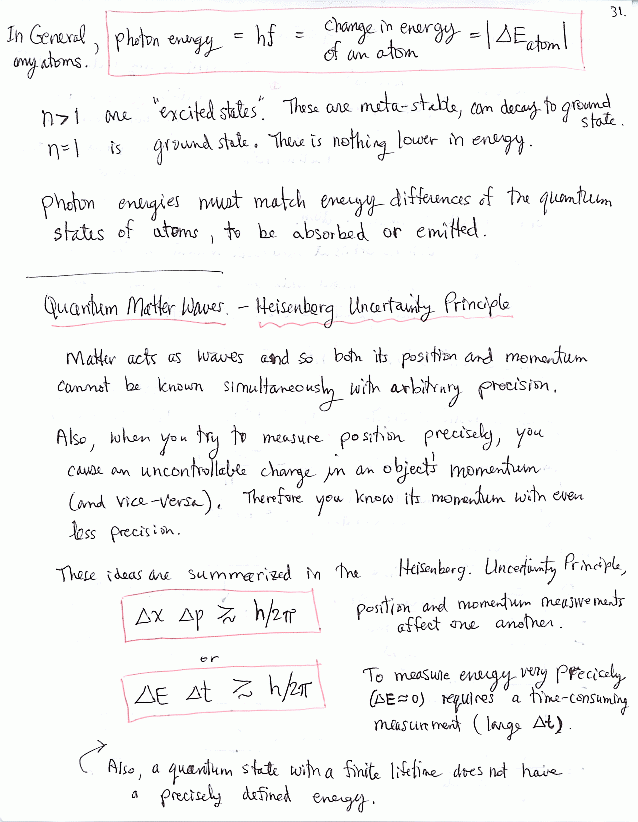 31.
In General, any atoms. photon energy = hf = change in energy of an atom = |ΔE_atom|
n>1 are "excited states". These are meta-stable, can decay to ground state.
n=1 is ground state. There is nothing lower in energy.
Photon energies must match energy differences of the quantum
states of atoms, to be absorbed or emitted.
Quantum Matter Waves. - Heisenberg Uncertainty Principle
Matter acts as waves and so both its position and momentum
cannot be known simultaneously with arbitrary precision.
Also, when you try to measure position precisely, you
cause an uncontrollable change in an object's momentum
(and vice-versa). Therefore you know its momentum with even
less precision.
These ideas are summarized in the Heisenberg. Uncertainty Principle,
Δx Δp ≳ h/2π
position and momentum measurements
affect one another.
or
ΔE Δt ≳ h/2π
To measure energy very precicely
(ΔE≈0) requires a time-consuming
measurement (large Δt).
Also, a quantum state with a finite lifetime does not have
a precisely defined energy.